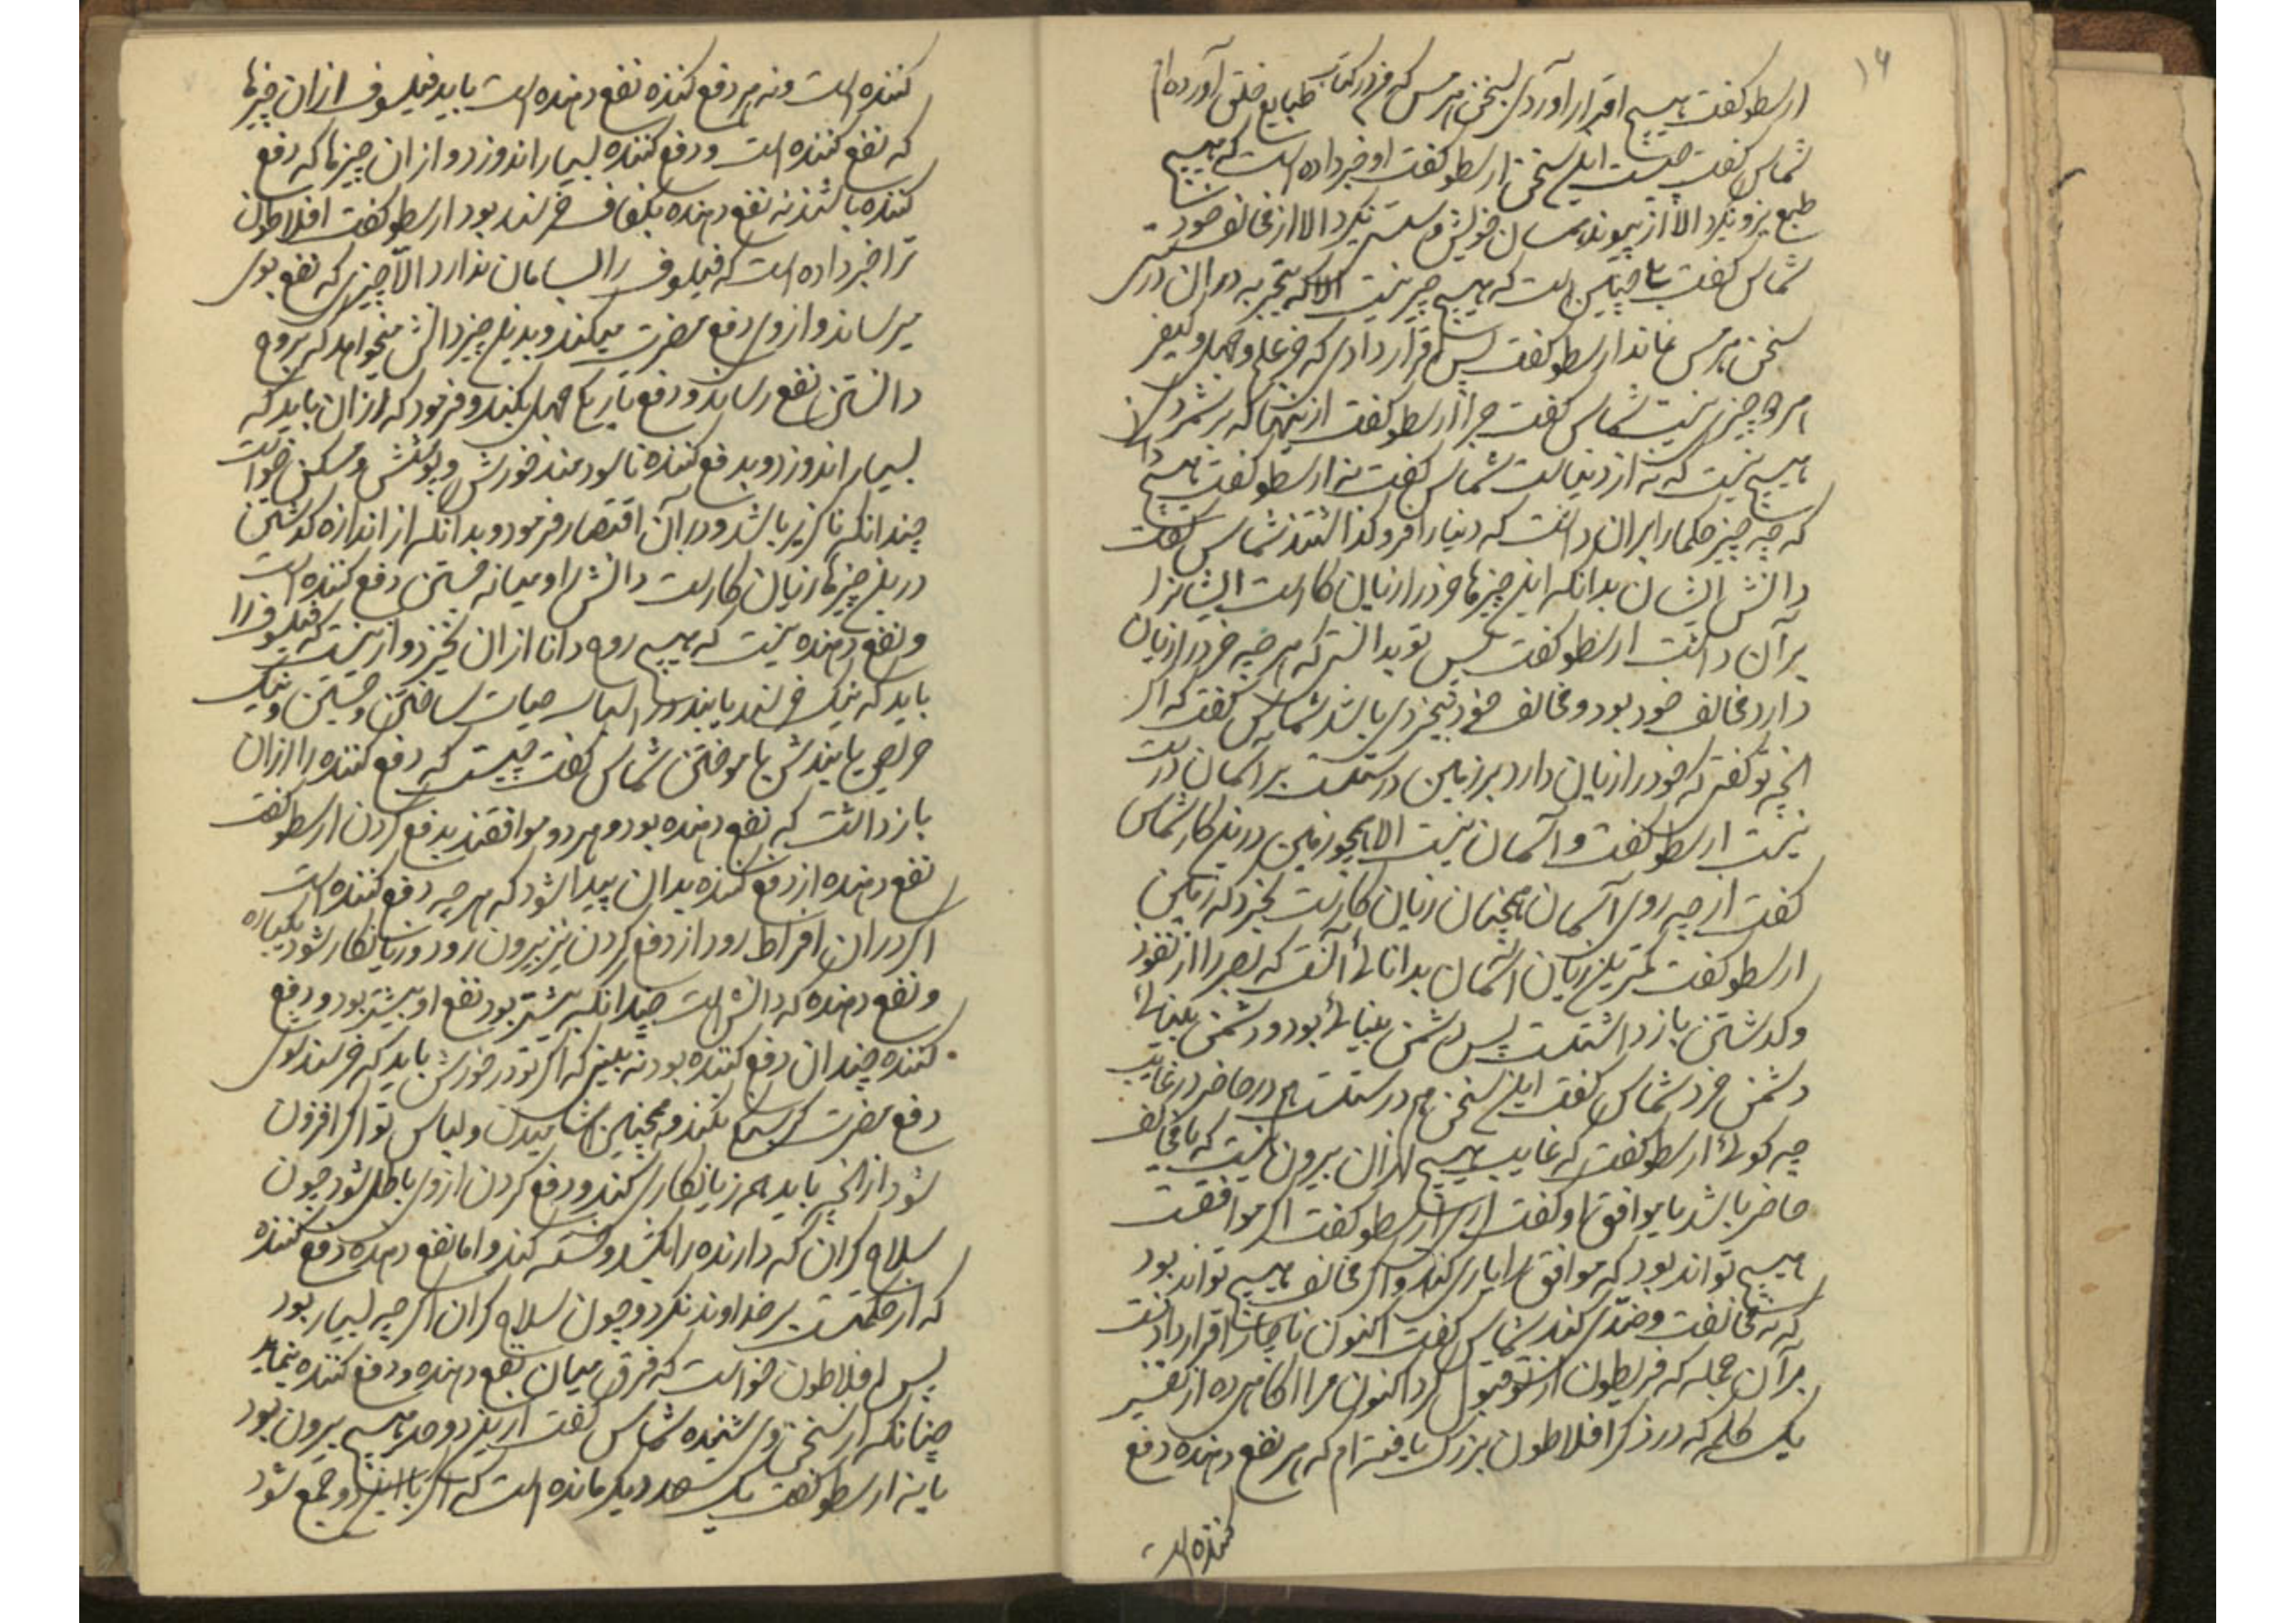 ۱۶
ارسطو گفت هیچ اقرار آوردی بسخن هرمس که من در کتاب طبایع خلق آورده‌ام
شماس گفت چیست این سخن ارسطو گفت او خبر داده است که هیچ
طبع نیرو نگیرد الا از پیوند همسان خویش و سست نگردد الا از مخالف خود
شماس گفت چنین است که هیچ چیز نیست الا که تجربه در آن درستی
سخن هرمس نماند ارسطو گفت پس اقرار دادی که جز علم و جهل و کیفر
هر دو چیزی نیست شماس گفت چرا ارسطو گفت از ینها که بر شمردی
هیچ نیست که نه از دنیاست شماس گفت نه ارسطو گفت هیچ
که چه چیز حکما را بران داشت که دنیا را فرو گذاشتند شماس گفت
دانش ایشان بدانکه این چیزها خرد را زیان کارست ایشانرا
بر آن داشت ارسطو گفت پس تو بدانستی که هر چه خرد را زیان
دارد مخالف خرد بود و مخالف خرد بیخردی باشد شماس گفت که اگر
انچه تو گفتی که خرد را زیان دارد بر زمین درستست بر آسمان درست
نیست ارسطو گفت و آسمان نیست الا همچو زمین درین کار شماس
گفت از چه روی آسمان همچنان زیان کارست بخرد که زمین
ارسطو گفت کمترین زیان آسمان بدانائی آنست که بصر را از نفوذ
و گذشتن باز داشتست پس دشمن بینائی بود و دشمن بینائی
دشمن خرد شماس گفت این سخن هم درستست در حاضر در غایب
چه گوئی ارسطو گفت که غایب هیچ ازان بیرون نیست که یا مخالف
حاضر باشد یا موافق او گفت آری ارسطو گفت اگر موافقت
هیچ تواند بود که موافق را یاری کند و اگر مخالف هیچ تواند بود
که نه مخالفت و ضدی کند شماس گفت اکنون ناچار اقرار دادنست
بر آن جمله که فریطون از تو قبول کرد اکنون مرا آگاهی ده از تفسیر
یک کلمه که در ذکر افلاطون بزرگ یافته‌ام که هر نفع دهنده دفع
کننده است
کننده است و نه هر دفع کننده نفع دهنده است باید فیلسوف از ان چیزها
که نفع کننده است و دفع کننده بسیار اندوزد و از ان چیزها که دفع
کننده باشند نه نفع دهنده بکفاف خرسند بود ارسطو گفت افلاطون
ترا خبر داده است که فیلسوف را بسامان ندارد الا چیزی که نفع بوی
میرساند و از وی دفع مضرت میکند و بدین چیز دانش میخواهد که بر وی
دانستن نفع رساند و دفع تاریکی جهل بکند و فرمود که ازان باید که
بسیار اندوزد و بدفع کننده ناسودمند خورش و پوشش و مسکن خواست
چندانکه ناگزیر باشد و در آن اقتصار فرمود و بدانکه از اندازه گذشتن
درین چیزها زیان کارست دانش را و میانه جستن دفع کننده است
و نفع دهنده نیست که هیچ روی دانا از ان نخیزد و ازینست که فیلسوف را
باید که نیک خرسند یابند در اسباب حیات ساختن و جستن و نیک
حریص یابندش بآموختن شماس گفت چیست که دفع کننده را ازان
باز داشت که نفع دهنده بود و هر دو موافقند بدفع کردن ارسطو گفت
نفع دهنده از دفع کننده بدان پیدا شود که هر چه دفع کننده است
اگر در ان افراط رود از دفع کردن نیز بیرون رود و زیانکار شود یکباره
و نفع دهنده که دانش است چندانکه بیشتر بود نفع او بیشتر بود و دفع
کننده چندان دفع کننده بود نه بینی که اگر تو در خورش باید که خرسند بوی
دفع مضرت گرسنگی بکند و همچنین آشامیدن و لباس تو اگر افزون
شود از انچه باید هم زیانکاری کند و دفع کردن از وی باطل شود چون
سلاح گران که دارنده را بکشد و خسته کند و اما نفع دهنده دفع کننده
که آن حکمتست بر خداوند نگردد چون سلاح گران اگر چه بسیار بود
پس افلاطون خواست که فرق میان نفع دهنده و دفع کننده بنماید
چنانکه از سخن وی شنیده شماس گفت ازین دو حد هیچ بیرون بود
یا نه ارسطو گفت یک حد دیگر مانده است که اگر با این دو جمع شود